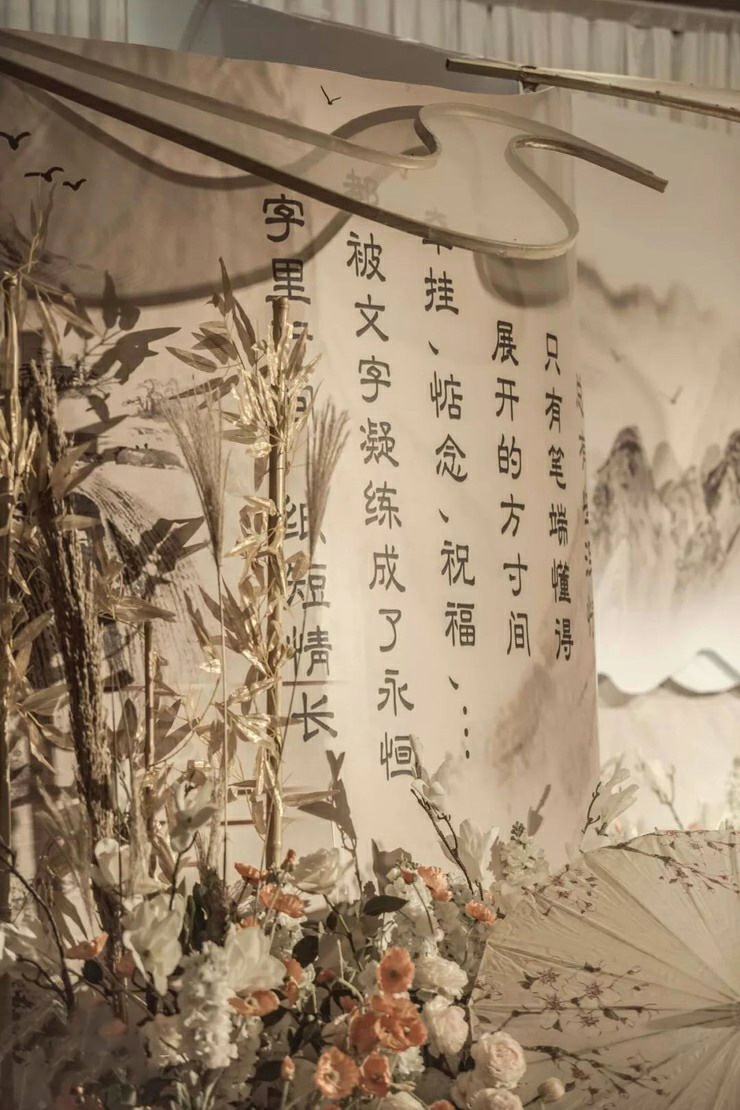 只有笔端懂得
展开的方寸间
牵挂、惦念、祝福、…
都被文字凝练成了永恒
字里行间 纸短情长